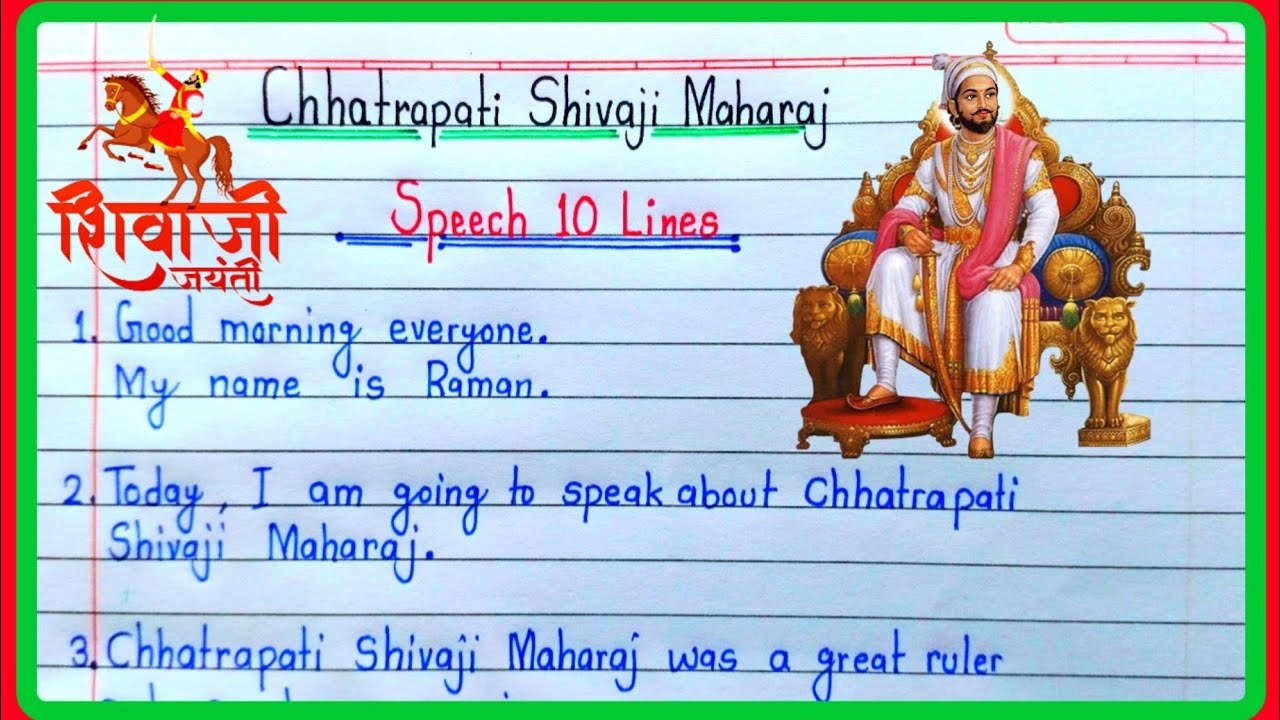 Chhatrapati Shivaji Maharaj
शिवाजी
जयंती
Speech 10 Lines
1. Good morning everyone.
My name is Raman.
2. Today, I am going to speak about Chhatrapati
Shivaji Maharaj.
3. Chhatrapati Shivaji Maharaj was a great ruler